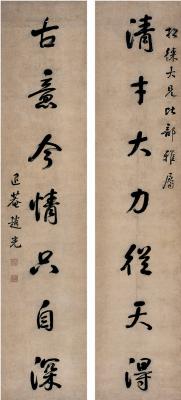 松糅大兄比部雅属
清才大力从天得
古意今情只自深
退菴趙光